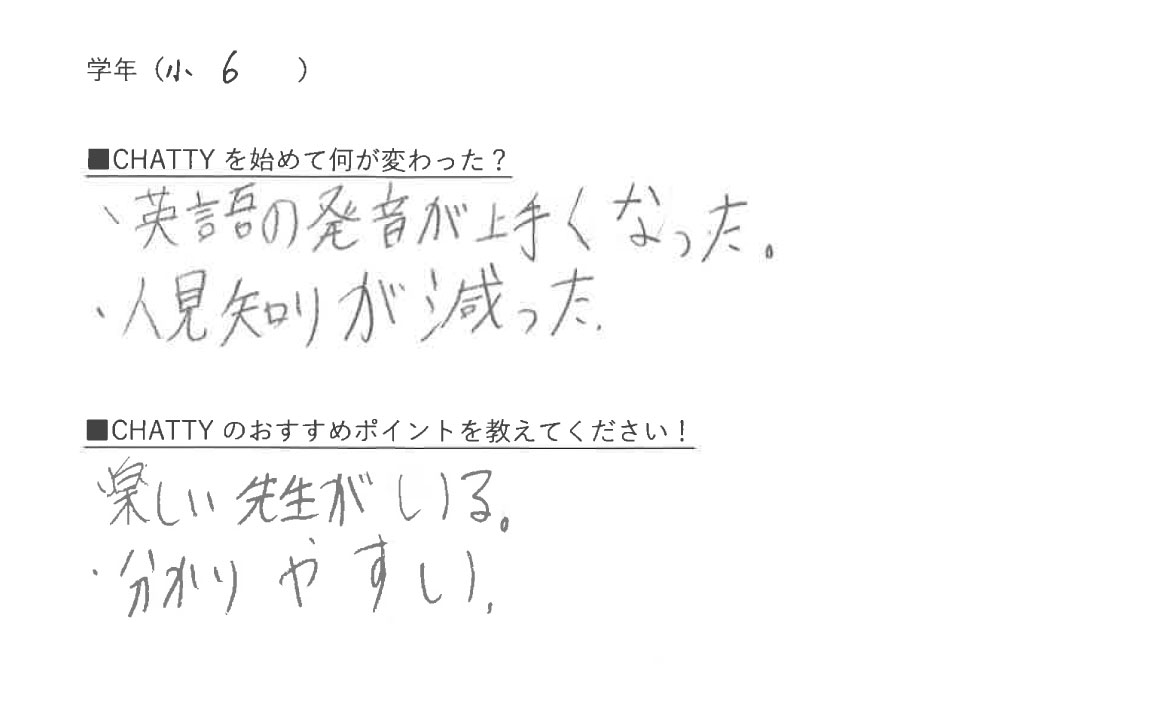 学年(小 6 )
■CHATTY を始めて何が変わった？
・英語の発音が上手くなった。
・人見知りが減った.
■CHATTY のおすすめポイントを教えてください！
・楽しい先生がいる。
・分かりやすい.